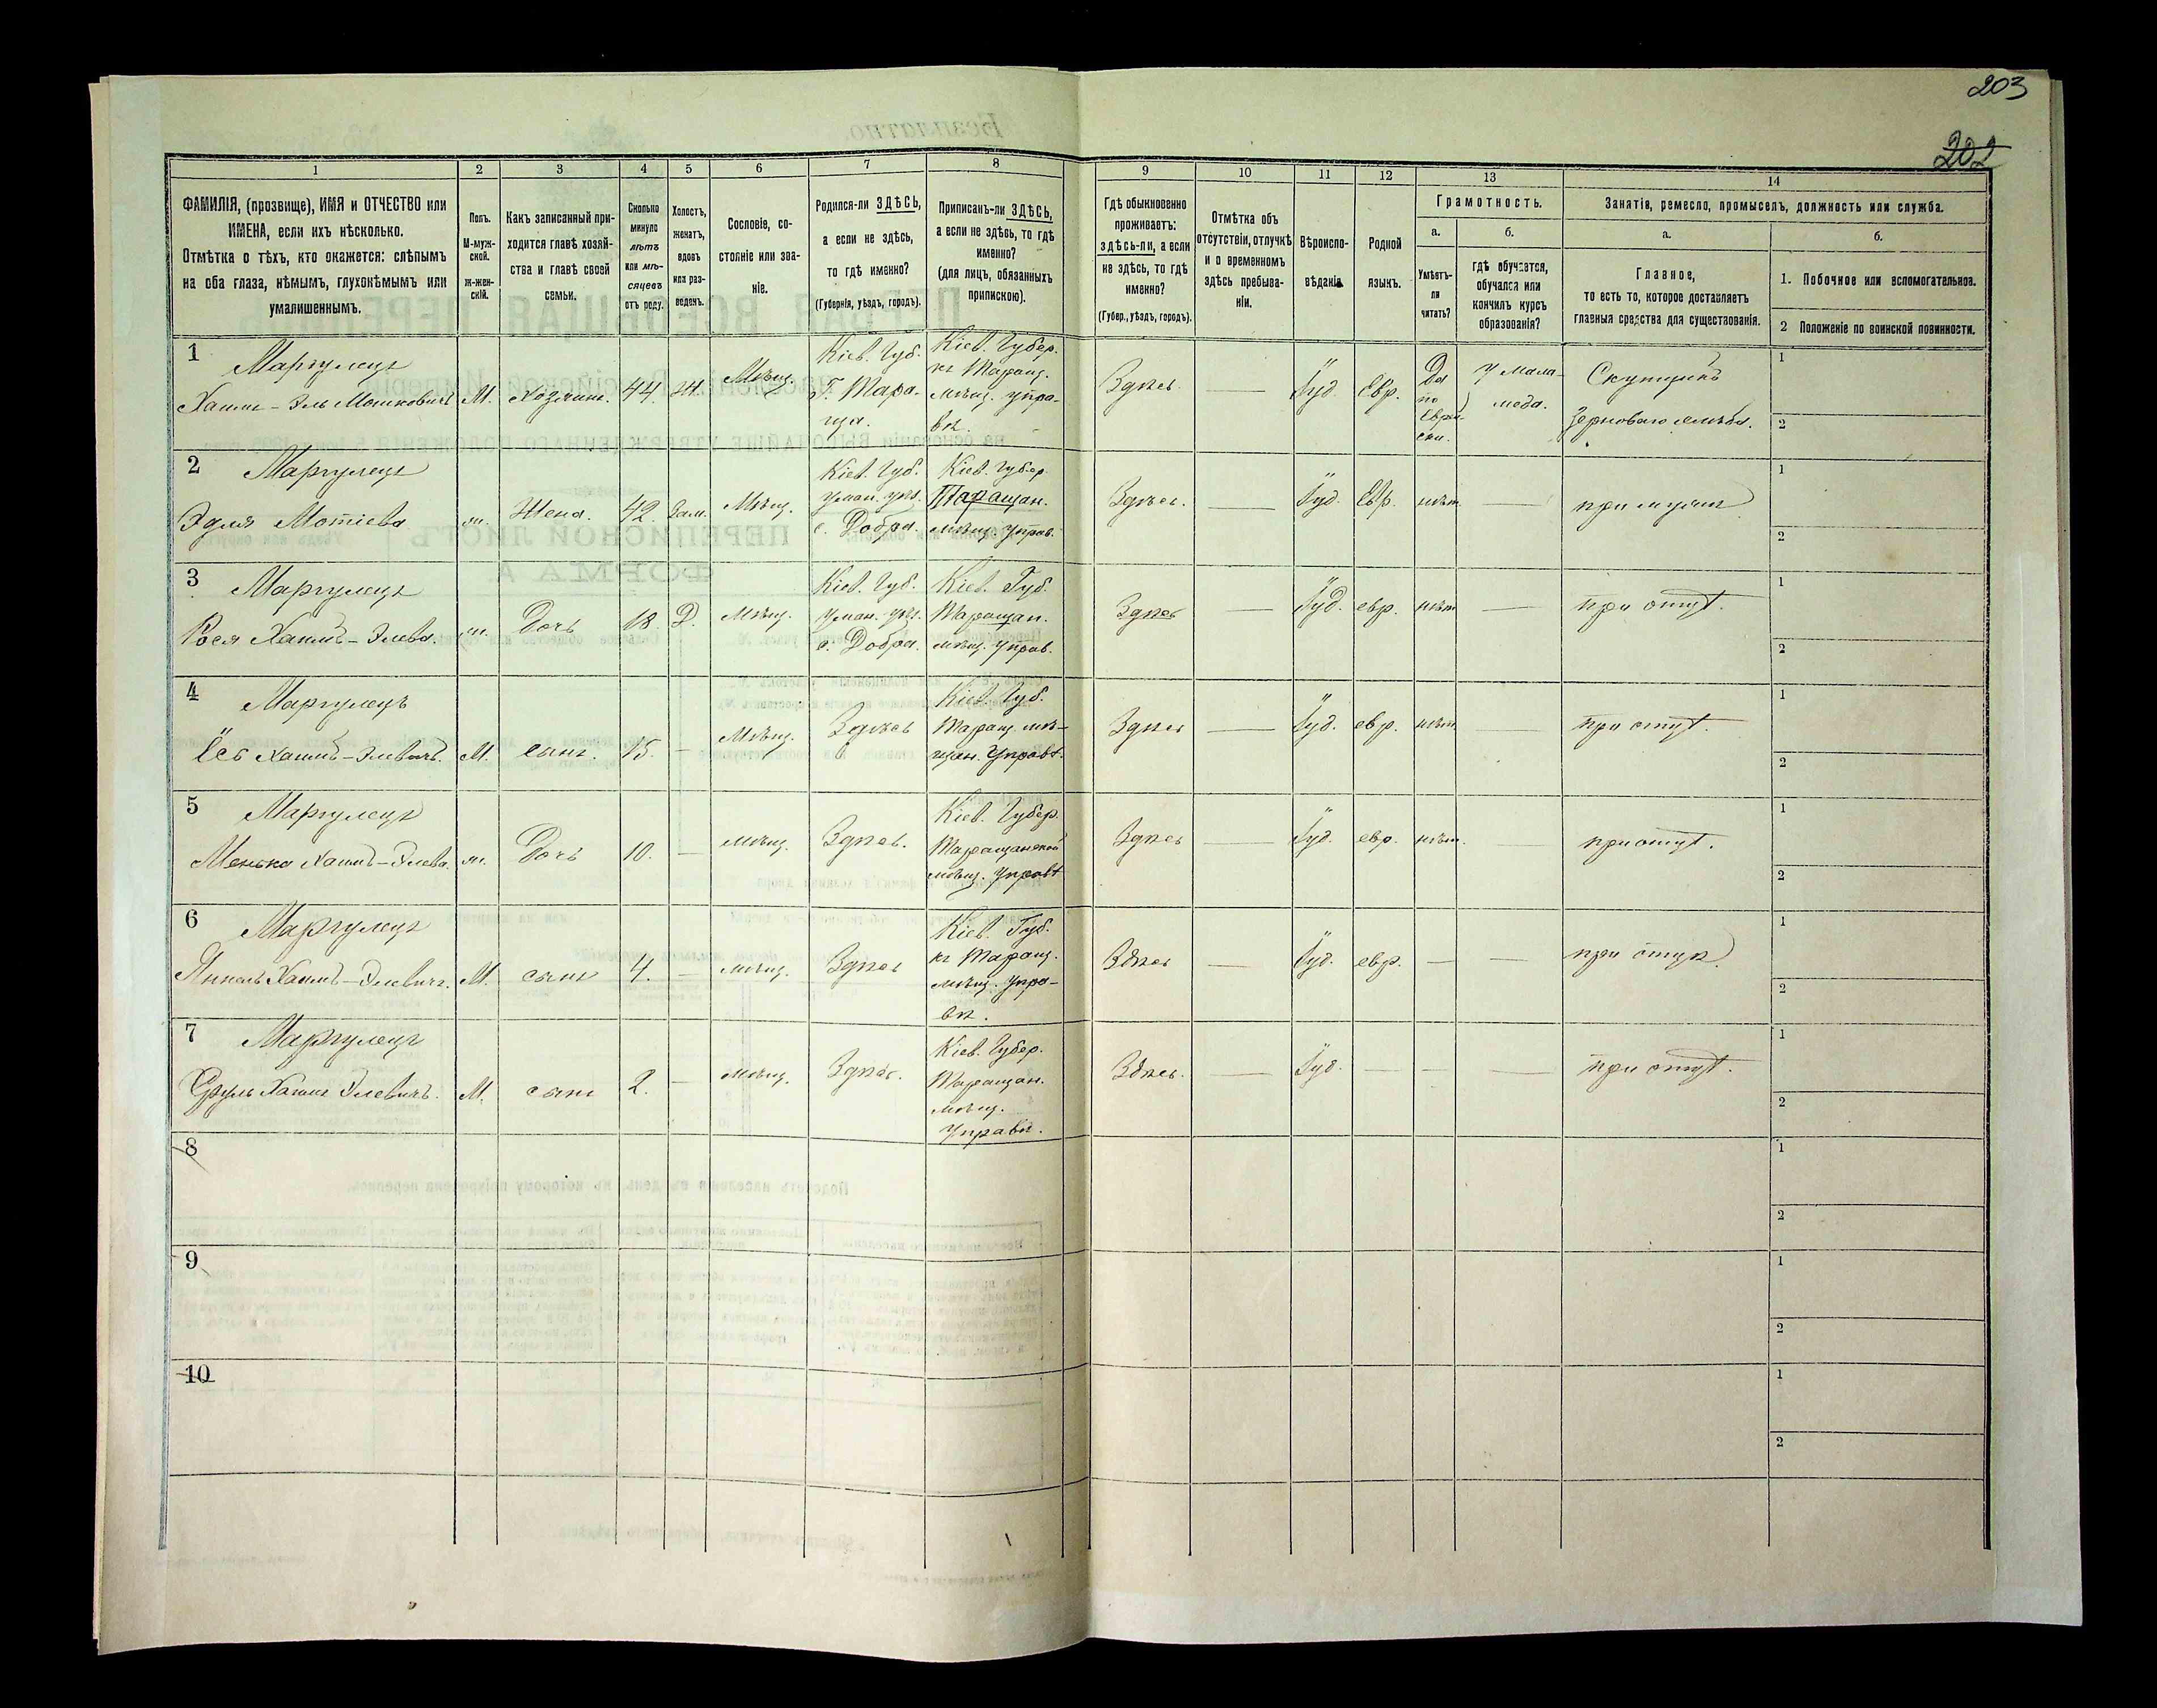 203
202
1
2
3
4
5
6
7
8
9
10
11
12
13
14
ФАМИЛІЯ, (прозвище), ИМЯ и ОТЧЕСТВО или
ИМЕНА, если ихъ нѣсколько.
Отмѣтка о тѣхъ, кто окажется: слѣпымъ
на оба глаза, нѣмымъ, глухонѣмымъ или
умалишеннымъ.
Полъ.
М-муж-
ской.
ж-жен-
скій.
Какъ записанный при-
ходится главѣ хозяй-
ства и главѣ своей
семьи.
Сколько
минуло
лѣтъ
или мѣ-
сяцевъ
отъ роду.
Холостъ,
женатъ,
вдовъ
или раз-
веденъ.
Сословіе, со-
стояніе или зва-
ніе.
Родился-ли ЗДѢСЬ,
а если не здѣсь,
то гдѣ именно?
(Губернія, уѣздъ, городъ).
Приписанъ-ли ЗДѢСЬ,
а если не здѣсь, то гдѣ
именно?
(для лицъ, обязанныхъ
припискою).
Гдѣ обыкновенно
проживаетъ:
здѣсь-ли, а если
не здѣсь, то гдѣ
именно?
(Губер., уѣздъ, городъ).
Отмѣтка объ
отсутствіи, отлучкѣ
и о временномъ
здѣсь пребыва-
ніи.
Вѣроиспо-
вѣданіе.
Родной
языкъ.
Грамотность.
а.
Умѣетъ-
ли
читать?
б.
гдѣ обучается,
обучался или
кончилъ курсъ
образованія?
Занятіе, ремесло, промыселъ, должность или служба.
а.
Главное,
то есть то, которое доставляетъ
главныя средства для существованія.
б.
1. Побочное или вспомогательное.
2 Положеніе по воинской повинности.
1
Маргулецъ
Хаимъ-Эль Мошковичъ
М.
Хозяинъ.
44.
Ж.
Мѣщ.
Кіев. Губ.
Г. Тара-
ща.
Кіев. Губер.
къ Таращ.
мѣщ. упра-
вѣ.
Здѣсь.
Іуд.
Евр.
Да
по
Еврей-
ски.
У мала-
меда.
Скупщикъ
Зерноваго хлѣба.
1
2
2
Маргулецъ
Эдля Мотіева
ж.
Жена.
42.
Зам.
Мѣщ.
Кіев. Губ.
Уман. уѣз.
с. Добра.
Кіев. Губер
Таращан.
мѣщ. управ.
Здѣсь.
Іуд.
Евр.
нѣт
при мужѣ
1
2
3
Маргулецъ
Рося Хаимъ-Элева.
ж.
Дочь
18.
Д.
Мѣщ.
Кіев. Губ.
Уман. уѣз.
с. Добра.
Кіев. Губ.
Таращан.
мѣщ. управ.
Здѣсь
Іуд.
евр.
нѣт
при отцѣ.
1
2
4
Маргулецъ
Хаимъ-Элевичъ.
М.
сынъ.
15.
Мѣщ.
Здѣсь
Кіев. Губ.
Таращ. мѣ-
щан. Управѣ.
Здѣсь
Іуд.
евр.
нѣт
при отцѣ.
1
2
5
Маргулецъ
Менька Хаимъ-Элева.
ж.
Дочь
10.
мѣщ.
Здѣсь.
Кіев. Губер.
Таращанской
мѣщ. Управѣ
Здѣсь
Іуд.
евр.
нѣт.
при отцѣ.
1
2
6
Маргулецъ
Хаимъ-Элевичъ.
М.
сынъ
4.
мѣщ.
Здѣсь
Кіев. Губ.
къ Таращ.
мѣщ. Упра-
вѣ.
Здѣсь
Іуд.
евр.
при отцѣ.
1
2
7
Маргулецъ
Сруль Хаимъ Элевичъ.
М.
сынъ
2.
мѣщ.
Здѣсь.
Кіев. Губер.
Таращан.
мѣщ.
Управѣ.
Здѣсь.
Іуд.
при отцѣ.
1
2
8
1
2
9
1
2
10
1
2